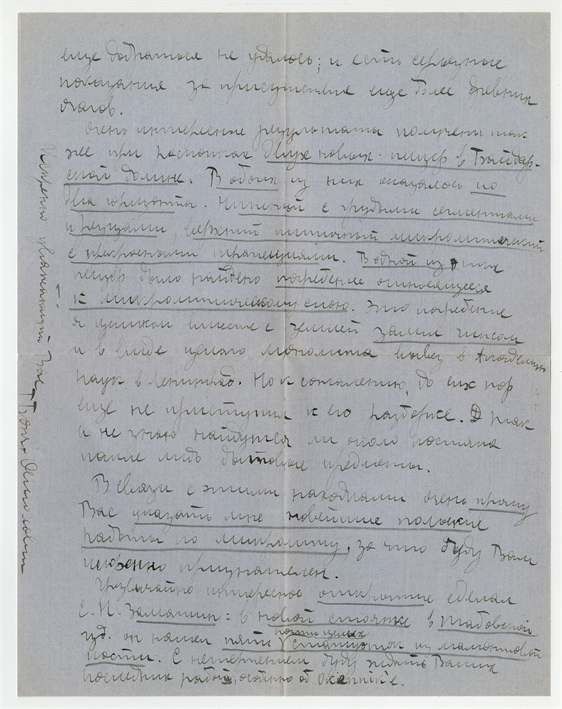 еще добраться не удалось; и есть серьезные
показания за присутствие еще более древних
очагов.
Очень интересные результаты получены так
же при раскопках двух новых пещер в Байдар-
ской долине. В обоих из них оказалось по
два горизонта. Нижний с грубыми сегментами
и резцами, верхний типичный микролитический
с прекрасными трапециями. В одной из них
пещер было найдено погребение относящееся
к микролитическому слою. Это погребение
я целиком вместе с землей залил гипсом
и в виде целого монолита вывез в Академию
наук в Ленинград. Но к сожалению, до сих пор
еще не приступил к его разборке. Я так
и не знаю найдутся ли около костяка
какие либо бытовые предметы.
В связи с этими находками очень прошу
Вас указать мне новейшие польские
работы по микролиту, за что буду Вам
искренно признателен.
Чрезвычайно интересное открытие сделал
С. Н. Замятнин: в новой стоянке в
он нашел пять почти целых статуэток из мамонтовой
кости. С нетерпением буду ждать Ваших
последних работ, особенно об
Искренно уважающий Вас
Глеб Бонч-Осмоловский